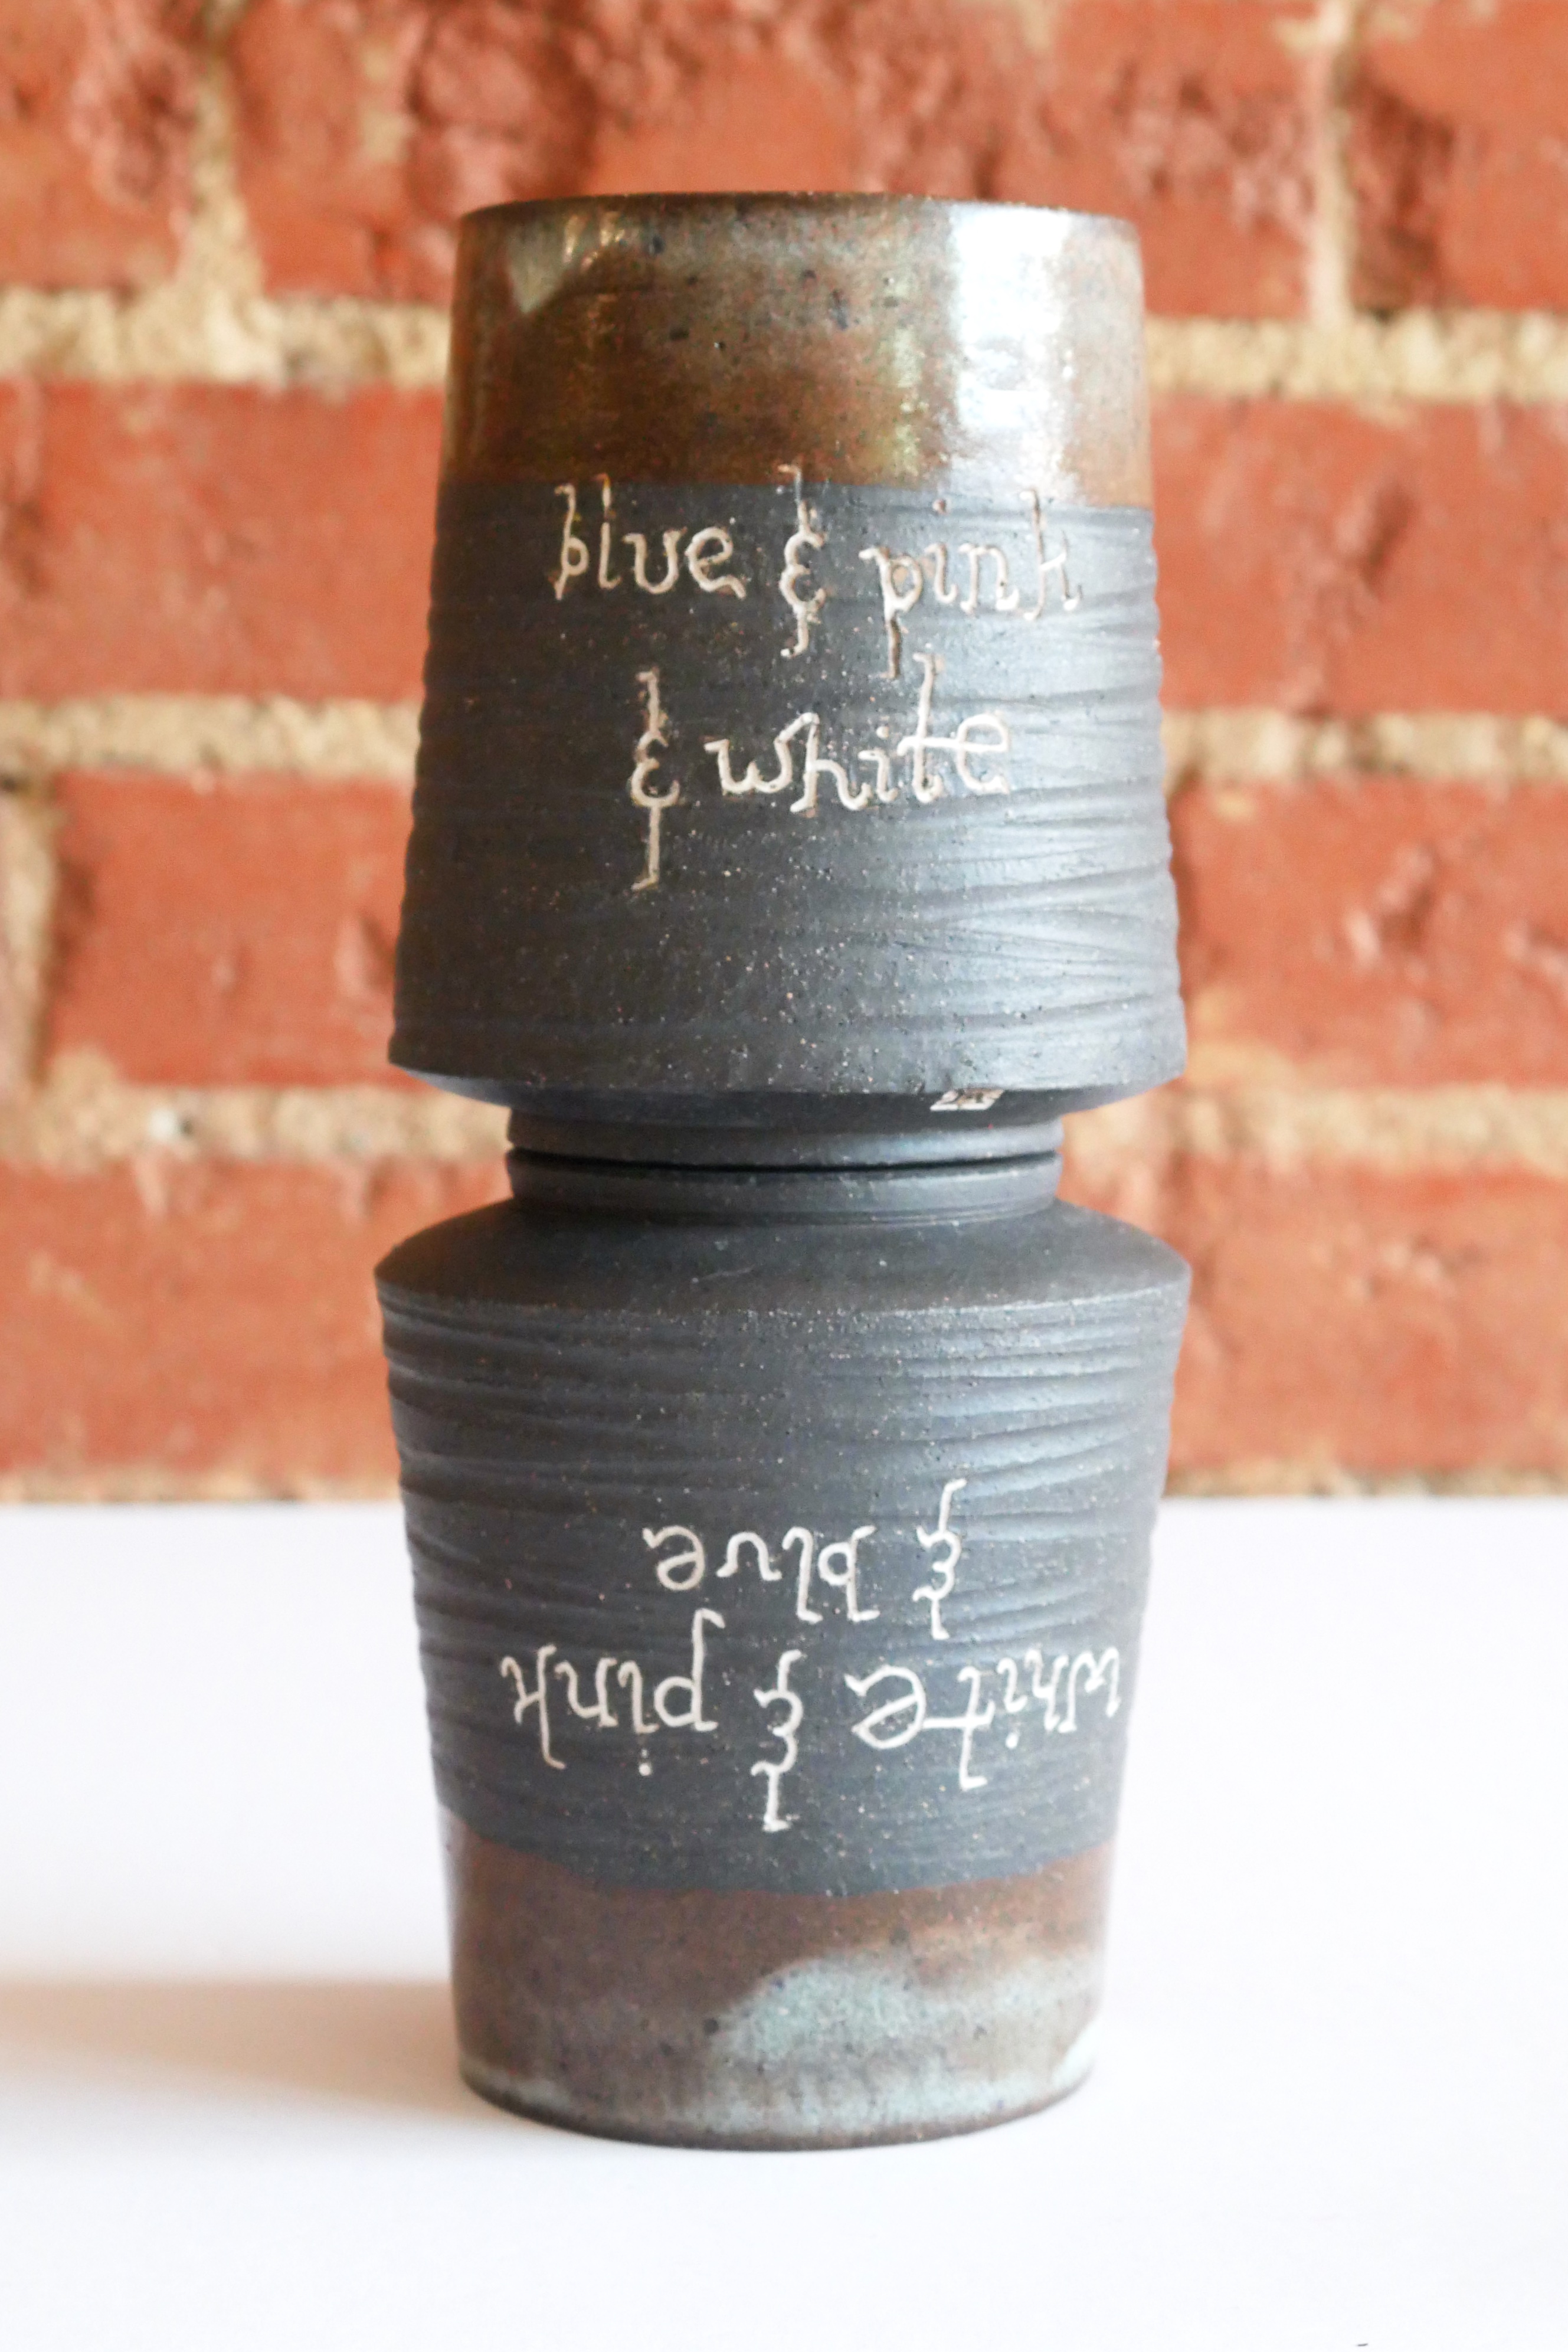 blue & pink
& white
white & pink
& blue